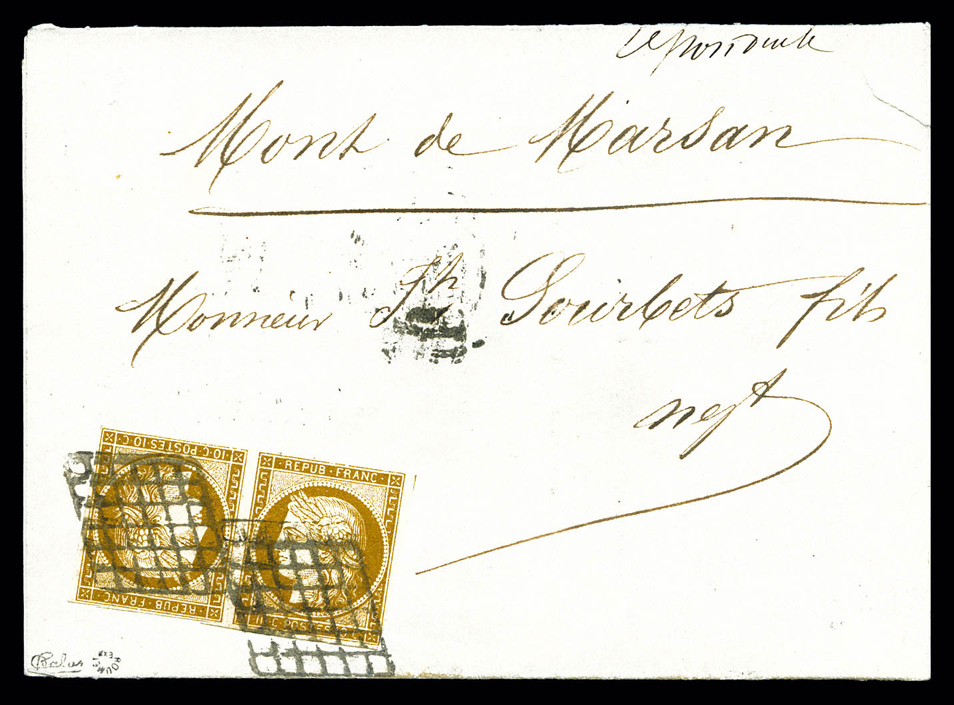 répondu le
Mont de Marsan
Monsieur Jh Sourbets fils
negt
10·C·POSTES·10·C·
REPUB·FRANC·
REPUB·FRANC·
10·C·POSTES·10·C·
Calves